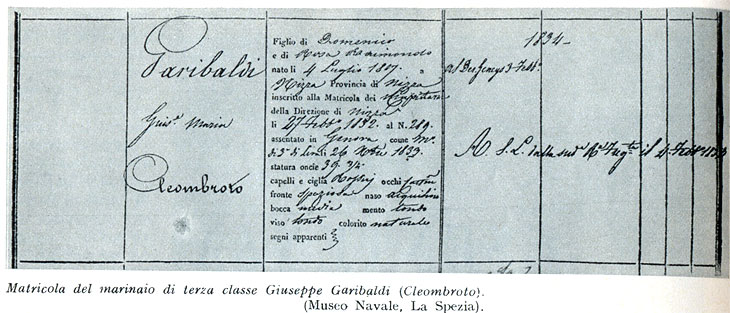 Garibaldi
Gius.e Maria
Cleombroto
Figlio di Domenico
e di Rosa Raimondo
nato li 4 Luglio 1807. a
Nizza Provincia di Nizza
inscritto alla Matricola dei
della Direzione di Nizza
li 27 Febb.o 1832. al N. 289.
assentato in Genova come
di 3.a li 26 1833.
statura oncie 39. 3/4
capelli e ciglia occhi
fronte spaziosa naso aquilino
bocca media mento tondo
viso tondo colorito naturale
segni apparenti
1834
Des Geneys 3 Febb.o
A. S. L. dalla il 4 Febb.o
Matricola del marinaio di terza classe Giuseppe Garibaldi (Cleombroto).
(Museo Navale, La Spezia).